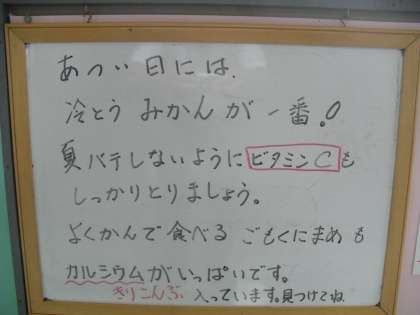 あつい日には、
冷とうみかんが一番。
夏バテしないようにビタミンCも
しっかりとりましょう。
よくかんで食べるごもくにまめも
カルシウムがいっぱいです。
きりこんぶ入っています。見つけてね。